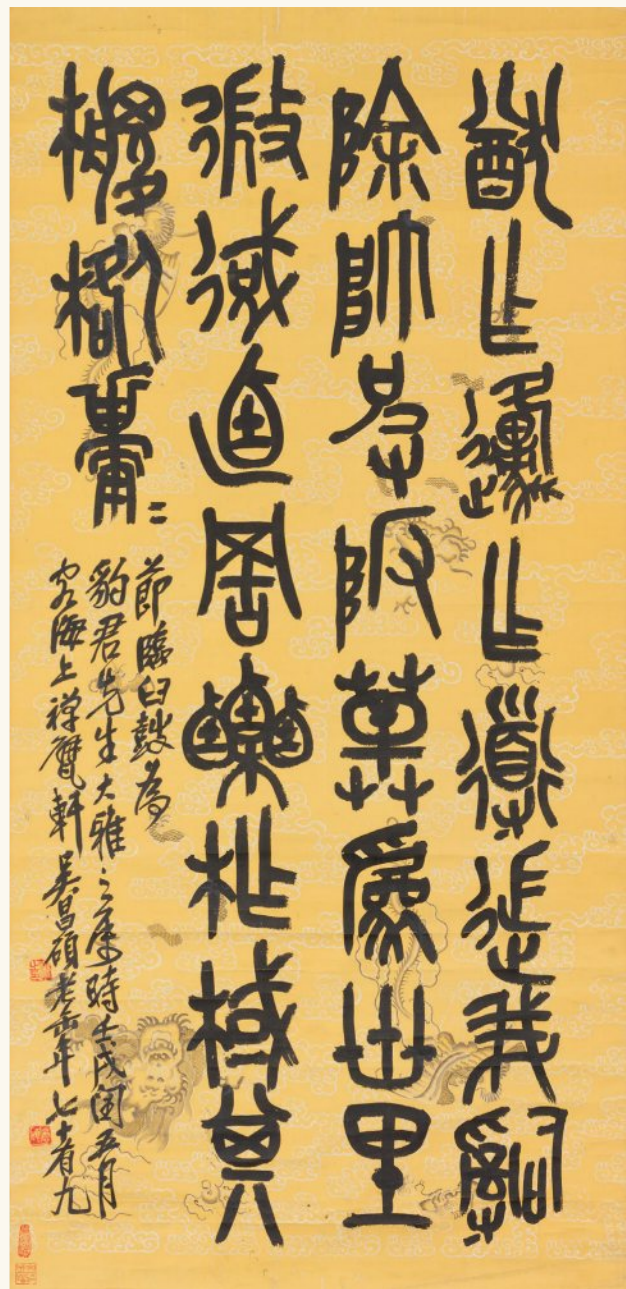 猷乍邍乍導遄我𤔲
除帥彼阪草為卅里
微逌罟栗柞棫其
椶楛𩫏=
節臨臼鼓為
豹君先生大雅之屬時壬戌閏五月
客海上禪甓軒吳昌碩老缶年七十有九